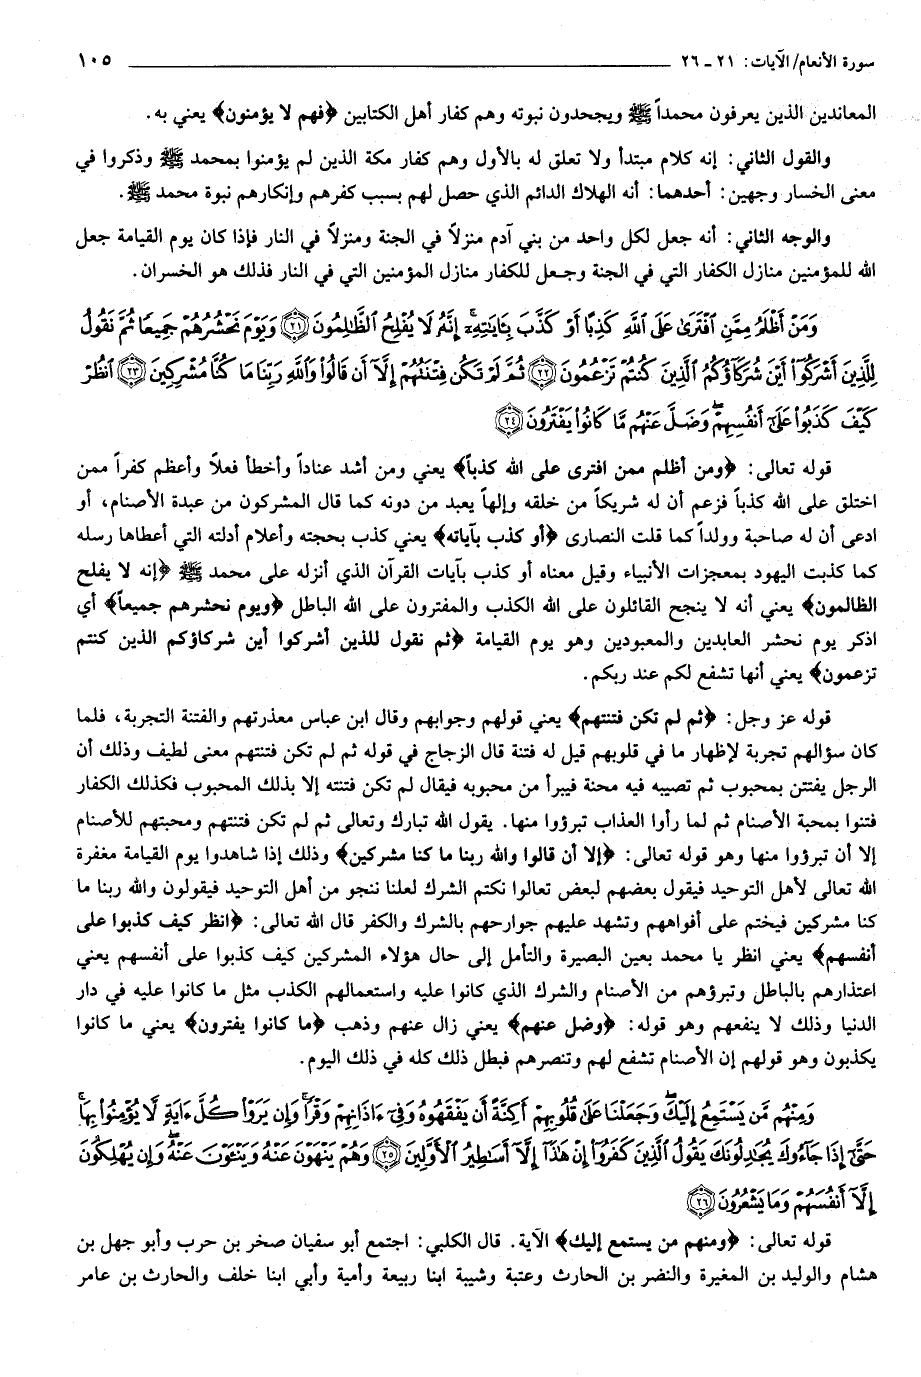 سورة الأنعام/ الآيات: ٢١ ـ ٢٦ ١٠٥
المعاندين الذين يعرفون محمداً ﷺ ويجحدون نبوته وهم كفار أهل الكتابين ﴿فهم لا يؤمنون﴾ يعني به.
والقول الثاني: إنه كلام مبتدأ ولا تعلق له بالأول وهم كفار مكة الذين لم يؤمنوا بمحمد ﷺ وذكروا في
معنى الخسار وجهين: أحدهما: أنه الهلاك الدائم الذي حصل لهم بسبب كفرهم وإنكارهم نبوة محمد ﷺ.
والوجه الثاني: أنه جعل لكل واحد من بني آدم منزلاً في الجنة ومنزلاً في النار فإذا كان يوم القيامة جعل
الله للمؤمنين منازل الكفار التي في الجنة وجعل للكفار منازل المؤمنين التي في النار فذلك هو الخسران.
وَمَنْ أَظْلَمُ مِمَّنِ ٱفْتَرَىٰ عَلَى ٱللَّهِ كَذِبًا أَوْ كَذَّبَ بِـَٔايَـٰتِهِۦٓ ۗ إِنَّهُۥ لَا يُفْلِحُ ٱلظَّـٰلِمُونَ ﴿٢١﴾ وَيَوْمَ نَحْشُرُهُمْ جَمِيعًا ثُمَّ نَقُولُ
لِلَّذِينَ أَشْرَكُوٓا۟ أَيْنَ شُرَكَآؤُكُمُ ٱلَّذِينَ كُنتُمْ تَزْعُمُونَ ﴿٢٢﴾ ثُمَّ لَمْ تَكُن فِتْنَتُهُمْ إِلَّآ أَن قَالُوا۟ وَٱللَّهِ رَبِّنَا مَا كُنَّا مُشْرِكِينَ ﴿٢٣﴾ ٱنظُرْ
كَيْفَ كَذَبُوا۟ عَلَىٰٓ أَنفُسِهِمْ ۚ وَضَلَّ عَنْهُم مَّا كَانُوا۟ يَفْتَرُونَ ﴿٢٤﴾
قوله تعالى: ﴿ومن أظلم ممن افترى على الله كذباً﴾ يعني ومن أشد عناداً وأخطأ فعلاً وأعظم كفراً ممن
اختلق على الله كذباً فزعم أن له شريكاً من خلقه وإلهاً يعبد من دونه كما قال المشركون من عبدة الأصنام، أو
ادعى أن له صاحبة وولداً كما قلت النصارى ﴿أو كذب بآياته﴾ يعني كذب بحجته وأعلام أدلته التي أعطاها رسله
كما كذبت اليهود بمعجزات الأنبياء وقيل معناه أو كذب بآيات القرآن الذي أنزله على محمد ﷺ ﴿إنه لا يفلح
الظالمون﴾ يعني أنه لا ينجح القائلون على الله الكذب والمفترون على الله الباطل ﴿ويوم نحشرهم جميعاً﴾ أي
اذكر يوم نحشر العابدين والمعبودين وهو يوم القيامة ﴿ثم نقول للذين أشركوا أين شركاؤكم الذين كنتم
تزعمون﴾ يعني أنها تشفع لكم عند ربكم.
قوله عز وجل: ﴿ثم لم تكن فتنتهم﴾ يعني قولهم وجوابهم وقال ابن عباس معذرتهم والفتنة التجربة، فلما
كان سؤالهم تجربة لإظهار ما في قلوبهم قيل له فتنة قال الزجاج في قوله ثم لم تكن فتنتهم معنى لطيف وذلك أن
الرجل يفتتن بمحبوب ثم تصيبه فيه محنة فيبرأ من محبوبه فيقال لم تكن فتنته إلا بذلك المحبوب فكذلك الكفار
فتنوا بمحبة الأصنام ثم لما رأوا العذاب تبرؤوا منها. يقول الله تبارك وتعالى ثم لم تكن فتنتهم ومحبتهم للأصنام
إلا أن تبرؤوا منها وهو قوله تعالى: ﴿إلا أن قالوا والله ربنا ما كنا مشركين﴾ وذلك إذا شاهدوا يوم القيامة مغفرة
الله تعالى لأهل التوحيد فيقول بعضهم لبعض تعالوا نكتم الشرك لعلنا ننجو من أهل التوحيد فيقولون والله ربنا ما
كنا مشركين فيختم على أفواههم وتشهد عليهم جوارحهم بالشرك والكفر قال الله تعالى: ﴿انظر كيف كذبوا على
أنفسهم﴾ يعني انظر يا محمد بعين البصيرة والتأمل إلى حال هؤلاء المشركين كيف كذبوا على أنفسهم يعني
اعتذارهم بالباطل وتبرؤهم من الأصنام والشرك الذي كانوا عليه واستعمالهم الكذب مثل ما كانوا عليه في دار
الدنيا وذلك لا ينفعهم وهو قوله: ﴿وضل عنهم﴾ يعني زال عنهم وذهب ﴿ما كانوا يفترون﴾ يعني ما كانوا
يكذبون وهو قولهم إن الأصنام تشفع لهم وتنصرهم فبطل ذلك كله في ذلك اليوم.
وَمِنْهُم مَّن يَسْتَمِعُ إِلَيْكَ ۖ وَجَعَلْنَا عَلَىٰ قُلُوبِهِمْ أَكِنَّةً أَن يَفْقَهُوهُ وَفِىٓ ءَاذَانِهِمْ وَقْرًا ۚ وَإِن يَرَوْا۟ كُلَّ ءَايَةٍ لَّا يُؤْمِنُوا۟ بِهَا ۚ
حَتَّىٰٓ إِذَا جَآءُوكَ يُجَـٰدِلُونَكَ يَقُولُ ٱلَّذِينَ كَفَرُوٓا۟ إِنْ هَـٰذَآ إِلَّآ أَسَـٰطِيرُ ٱلْأَوَّلِينَ ﴿٢٥﴾ وَهُمْ يَنْهَوْنَ عَنْهُ وَيَنْـَٔوْنَ عَنْهُ ۖ وَإِن يُهْلِكُونَ
إِلَّآ أَنفُسَهُمْ وَمَا يَشْعُرُونَ ﴿٢٦﴾
قوله تعالى: ﴿ومنهم من يستمع إليك﴾ الآية. قال الكلبي: اجتمع أبو سفيان صخر بن حرب وأبو جهل بن
هشام والوليد بن المغيرة والنضر بن الحارث وعتبة وشيبة ابنا ربيعة وأمية وأبي ابنا خلف والحارث بن عامر